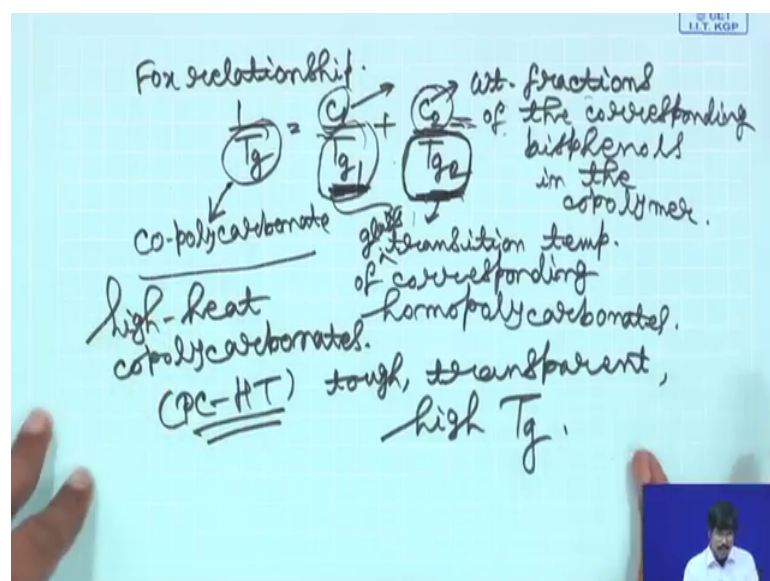 © CET
I.I.T. KGP
Fox relationship.
1/Tg = C1/Tg1 + C2/Tg2
wt. fractions
of the corresponding
bisphenols
in the
copolymer.
co-polycarbonate
glass transition temp.
of corresponding
homopolycarbonates.
high-heat
copolycarbonates.
(PC-HT) tough, transparent,
high Tg.